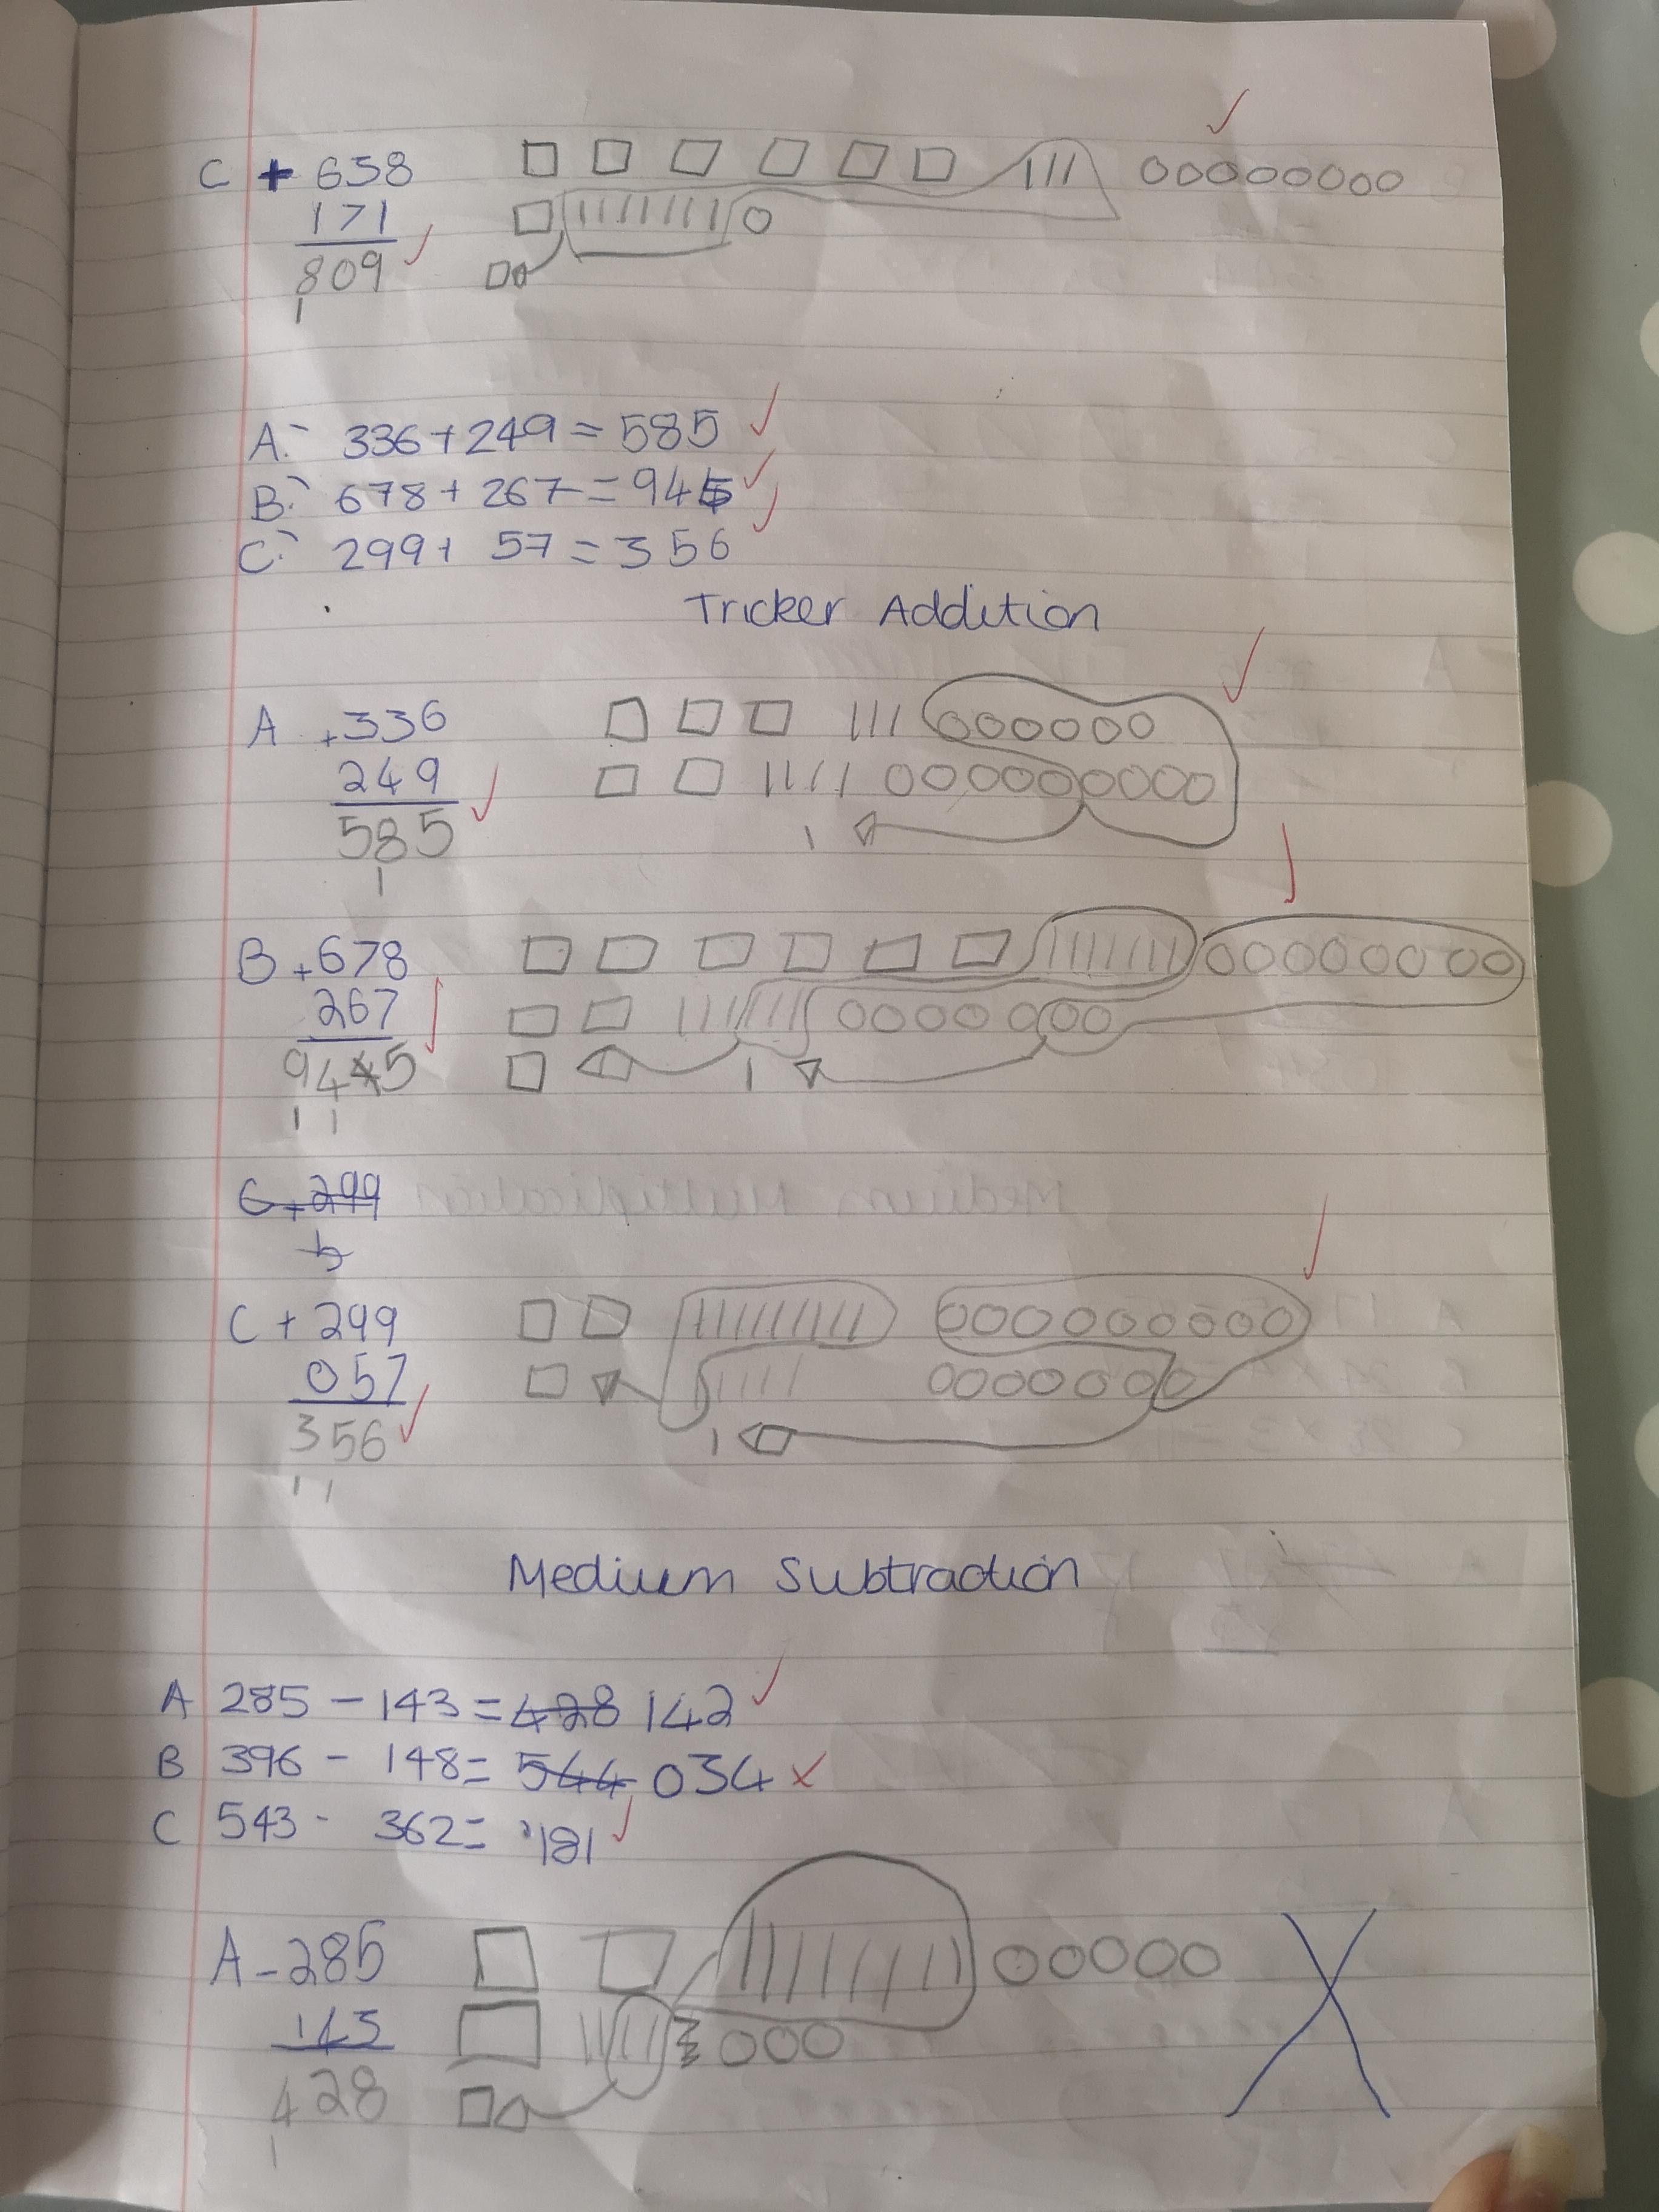 C + 638
171
809
1
A:- 336+249=585
B:- 678+267=945
C:- 299+ 57=356
Tricker Addition
A +336
249
585
1
1
B +678
267
9445
1
1 1
C +299
5
C + 299
057
356
1
1 1
Medium Subtraction
A 285 - 143 = 428 142
B 396 - 148= 544 034 x
C 543 - 362= 181
A -285
143
428
1